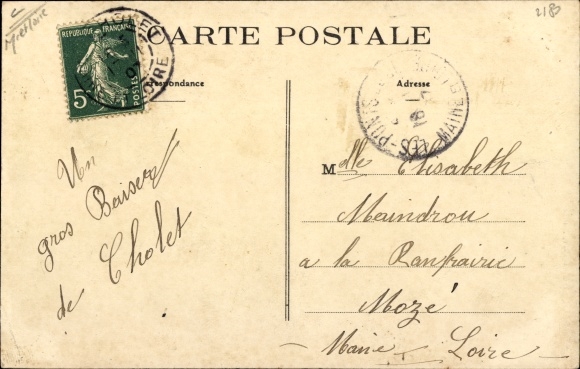 2180
CARTE POSTALE
REPUBLIQUE FRANÇAISE
5 c
POSTES
Correspondance
Adresse
LOIRE
PONTS-DE-CÉ
MAINE
Un
gros Baiser
de Cholet
Mdlle Elisabeth
Maindrou
a la Ranfrairie
Mozé
- Maine - Loire -